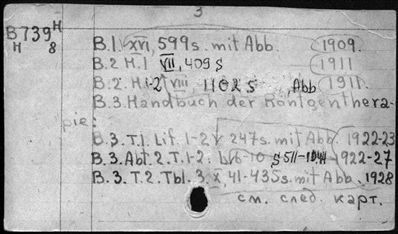 3
B 739 H
H 8
B.1. XVI, 599s. mit Abb. 1909.
B.2 H.1 VII, 409 S 1911
B.2. H.1-2 VIII, 1102 S, Abb 1911.
B.3. Handbuch der Röntgenthera-
pie:
B.3. T.1. Lif. 1-2 V 247s. mit Abb. 1922-23
B.3. Abt.2. T.1-2. 6-10 S 511-1044 1922-27
B.3. T.2. Tbl.3. X, 41-435s. mit Abb. 1928
см. след. карт.